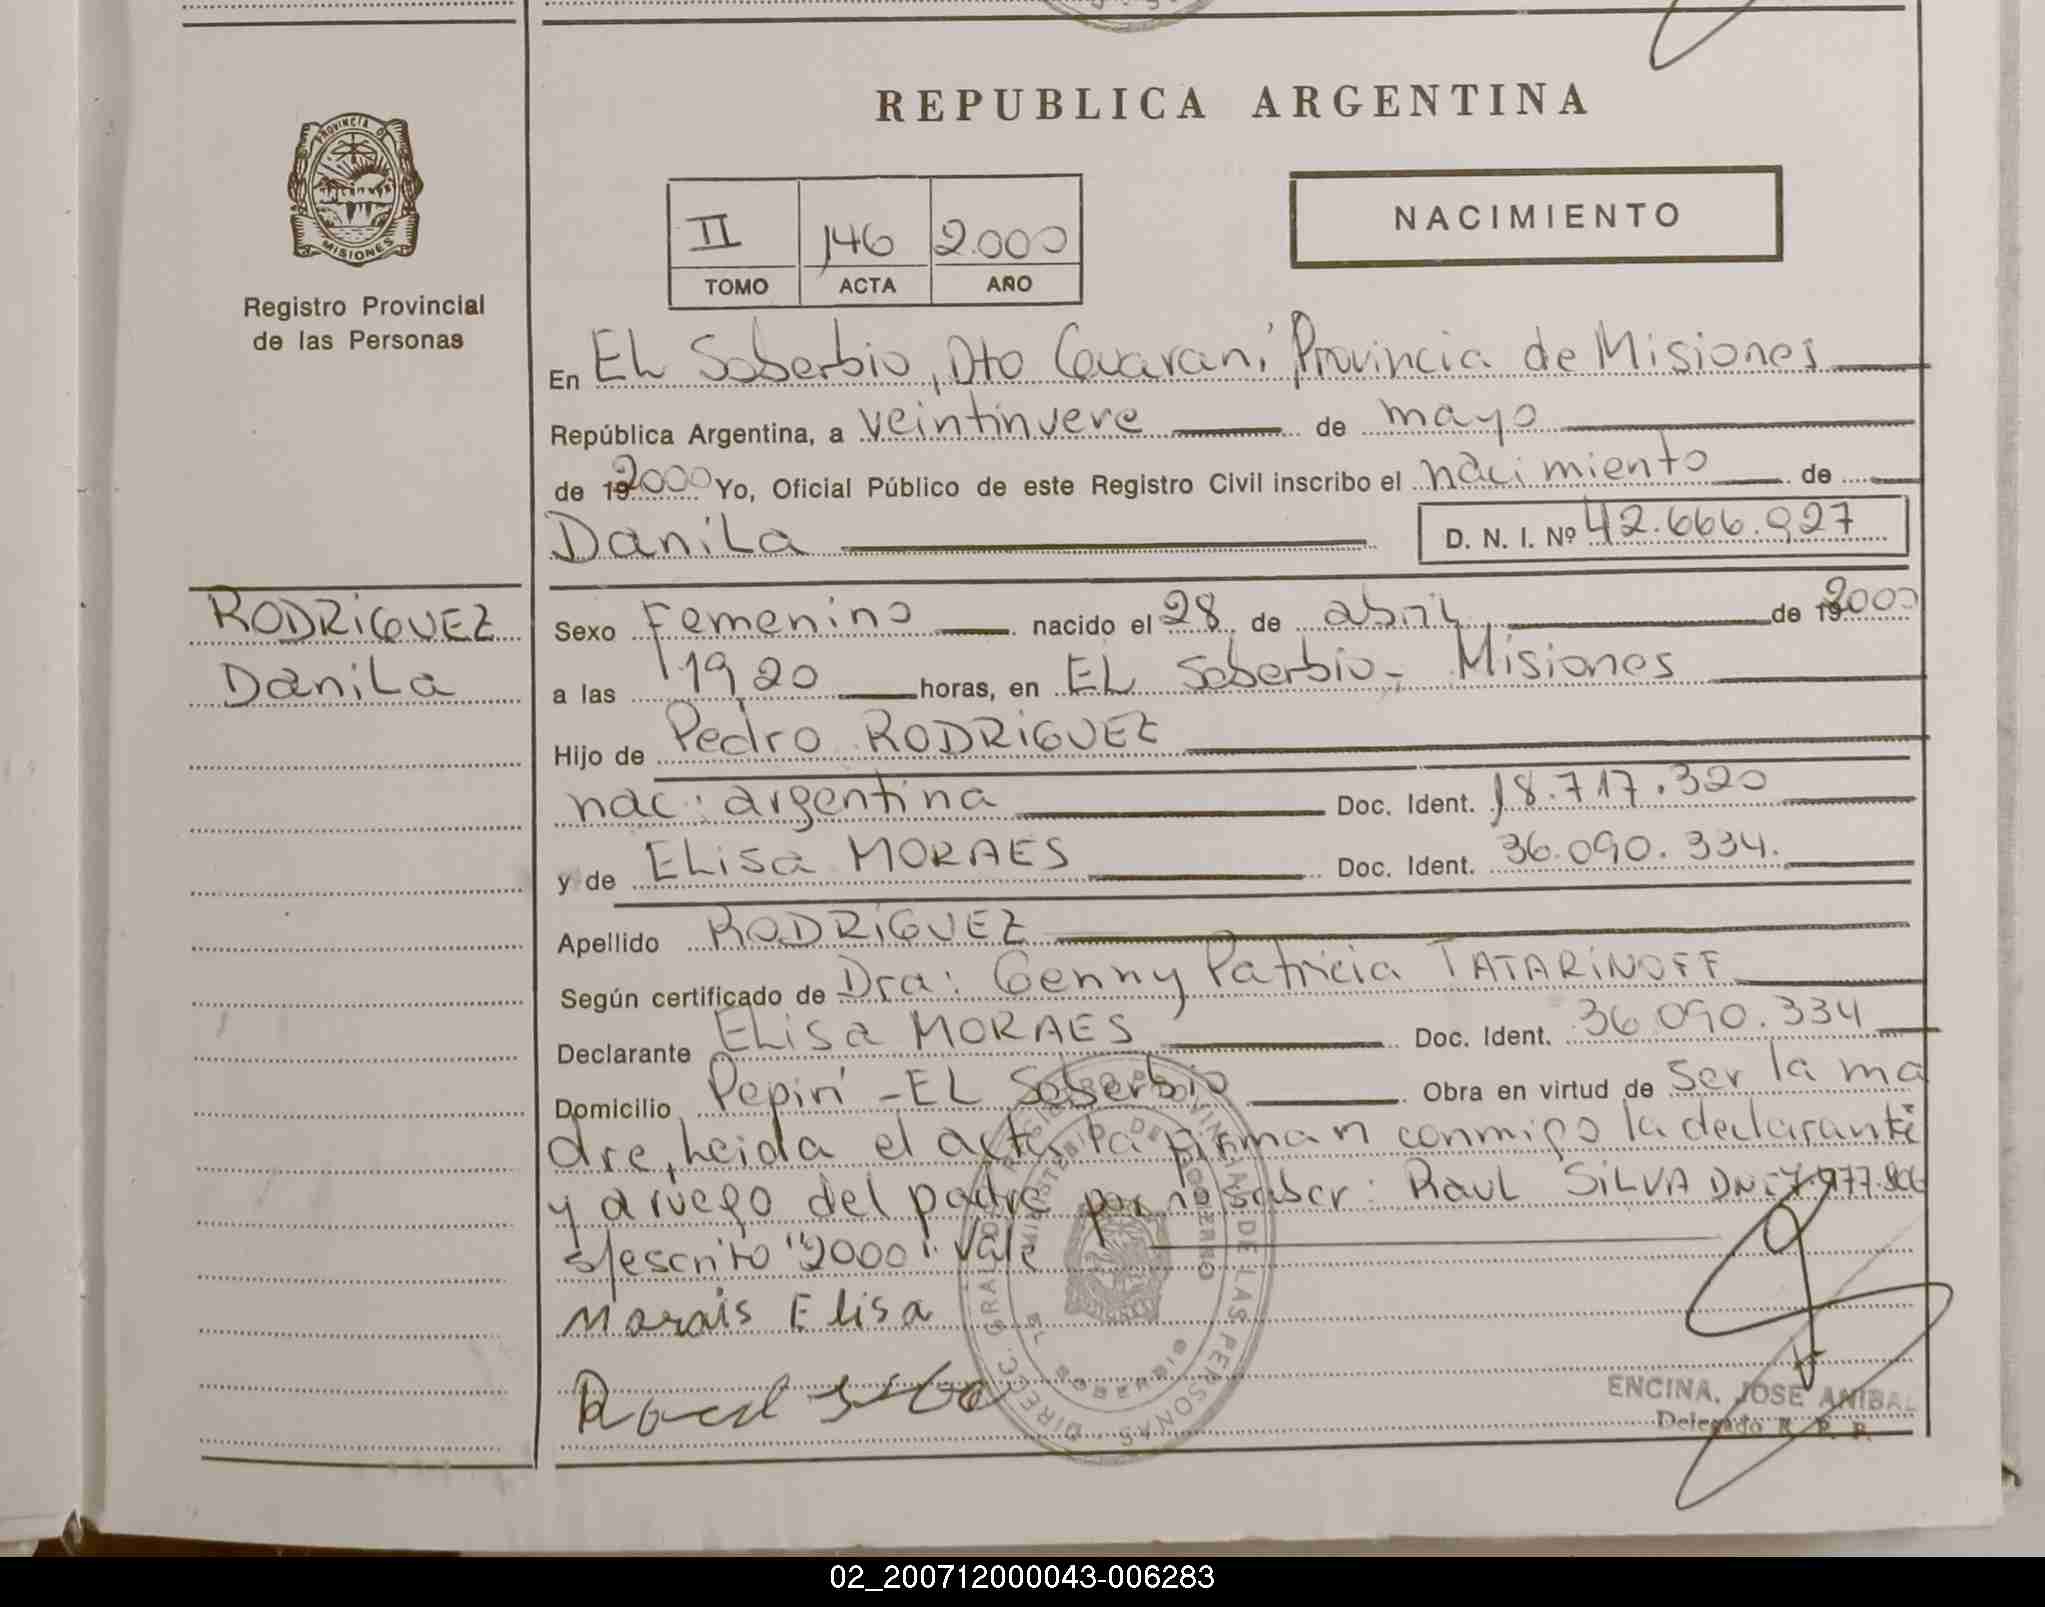 REPUBLICA ARGENTINA
PROVINCIA DE
MISIONES
Registro Provincial
de las Personas
II 146 2.000
TOMO ACTA AÑO
NACIMIENTO
En EL Soberbio, Dto Guaraní Provincia de Misiones
República Argentina, a veintinueve de mayo
de 192000 Yo, Oficial Público de este Registro Civil inscribo el nacimiento de
Danila D. N. I. Nº 42.666.927
RODRIGUEZ
Danila
Sexo Femenino nacido el 28 de abril de 192000
a las 19,20 horas, en EL Soberbio - Misiones
Hijo de Pedro RODRIGUEZ
nac: argentina Doc. Ident. 18.717.320
y de ELisa MORAES Doc. Ident. 36.090.334.
Apellido RODRIGUEZ
Según certificado de Dra: Genny Patricia TATARINOFF
Declarante ELisa MORAES Doc. Ident. 36.090.334
Domicilio Pepirí - EL Soberbio Obra en virtud de ser la ma
dre, leida el acta la firman conmigo la declarante
y a ruego del padre por no saber: Raul SILVA DNI
s/escrito "2000": Vale
Morais Elisa
Raul Silva
ENCINA, JOSE ANIBAL
Delegado R. P. P.
02_200712000043-006283